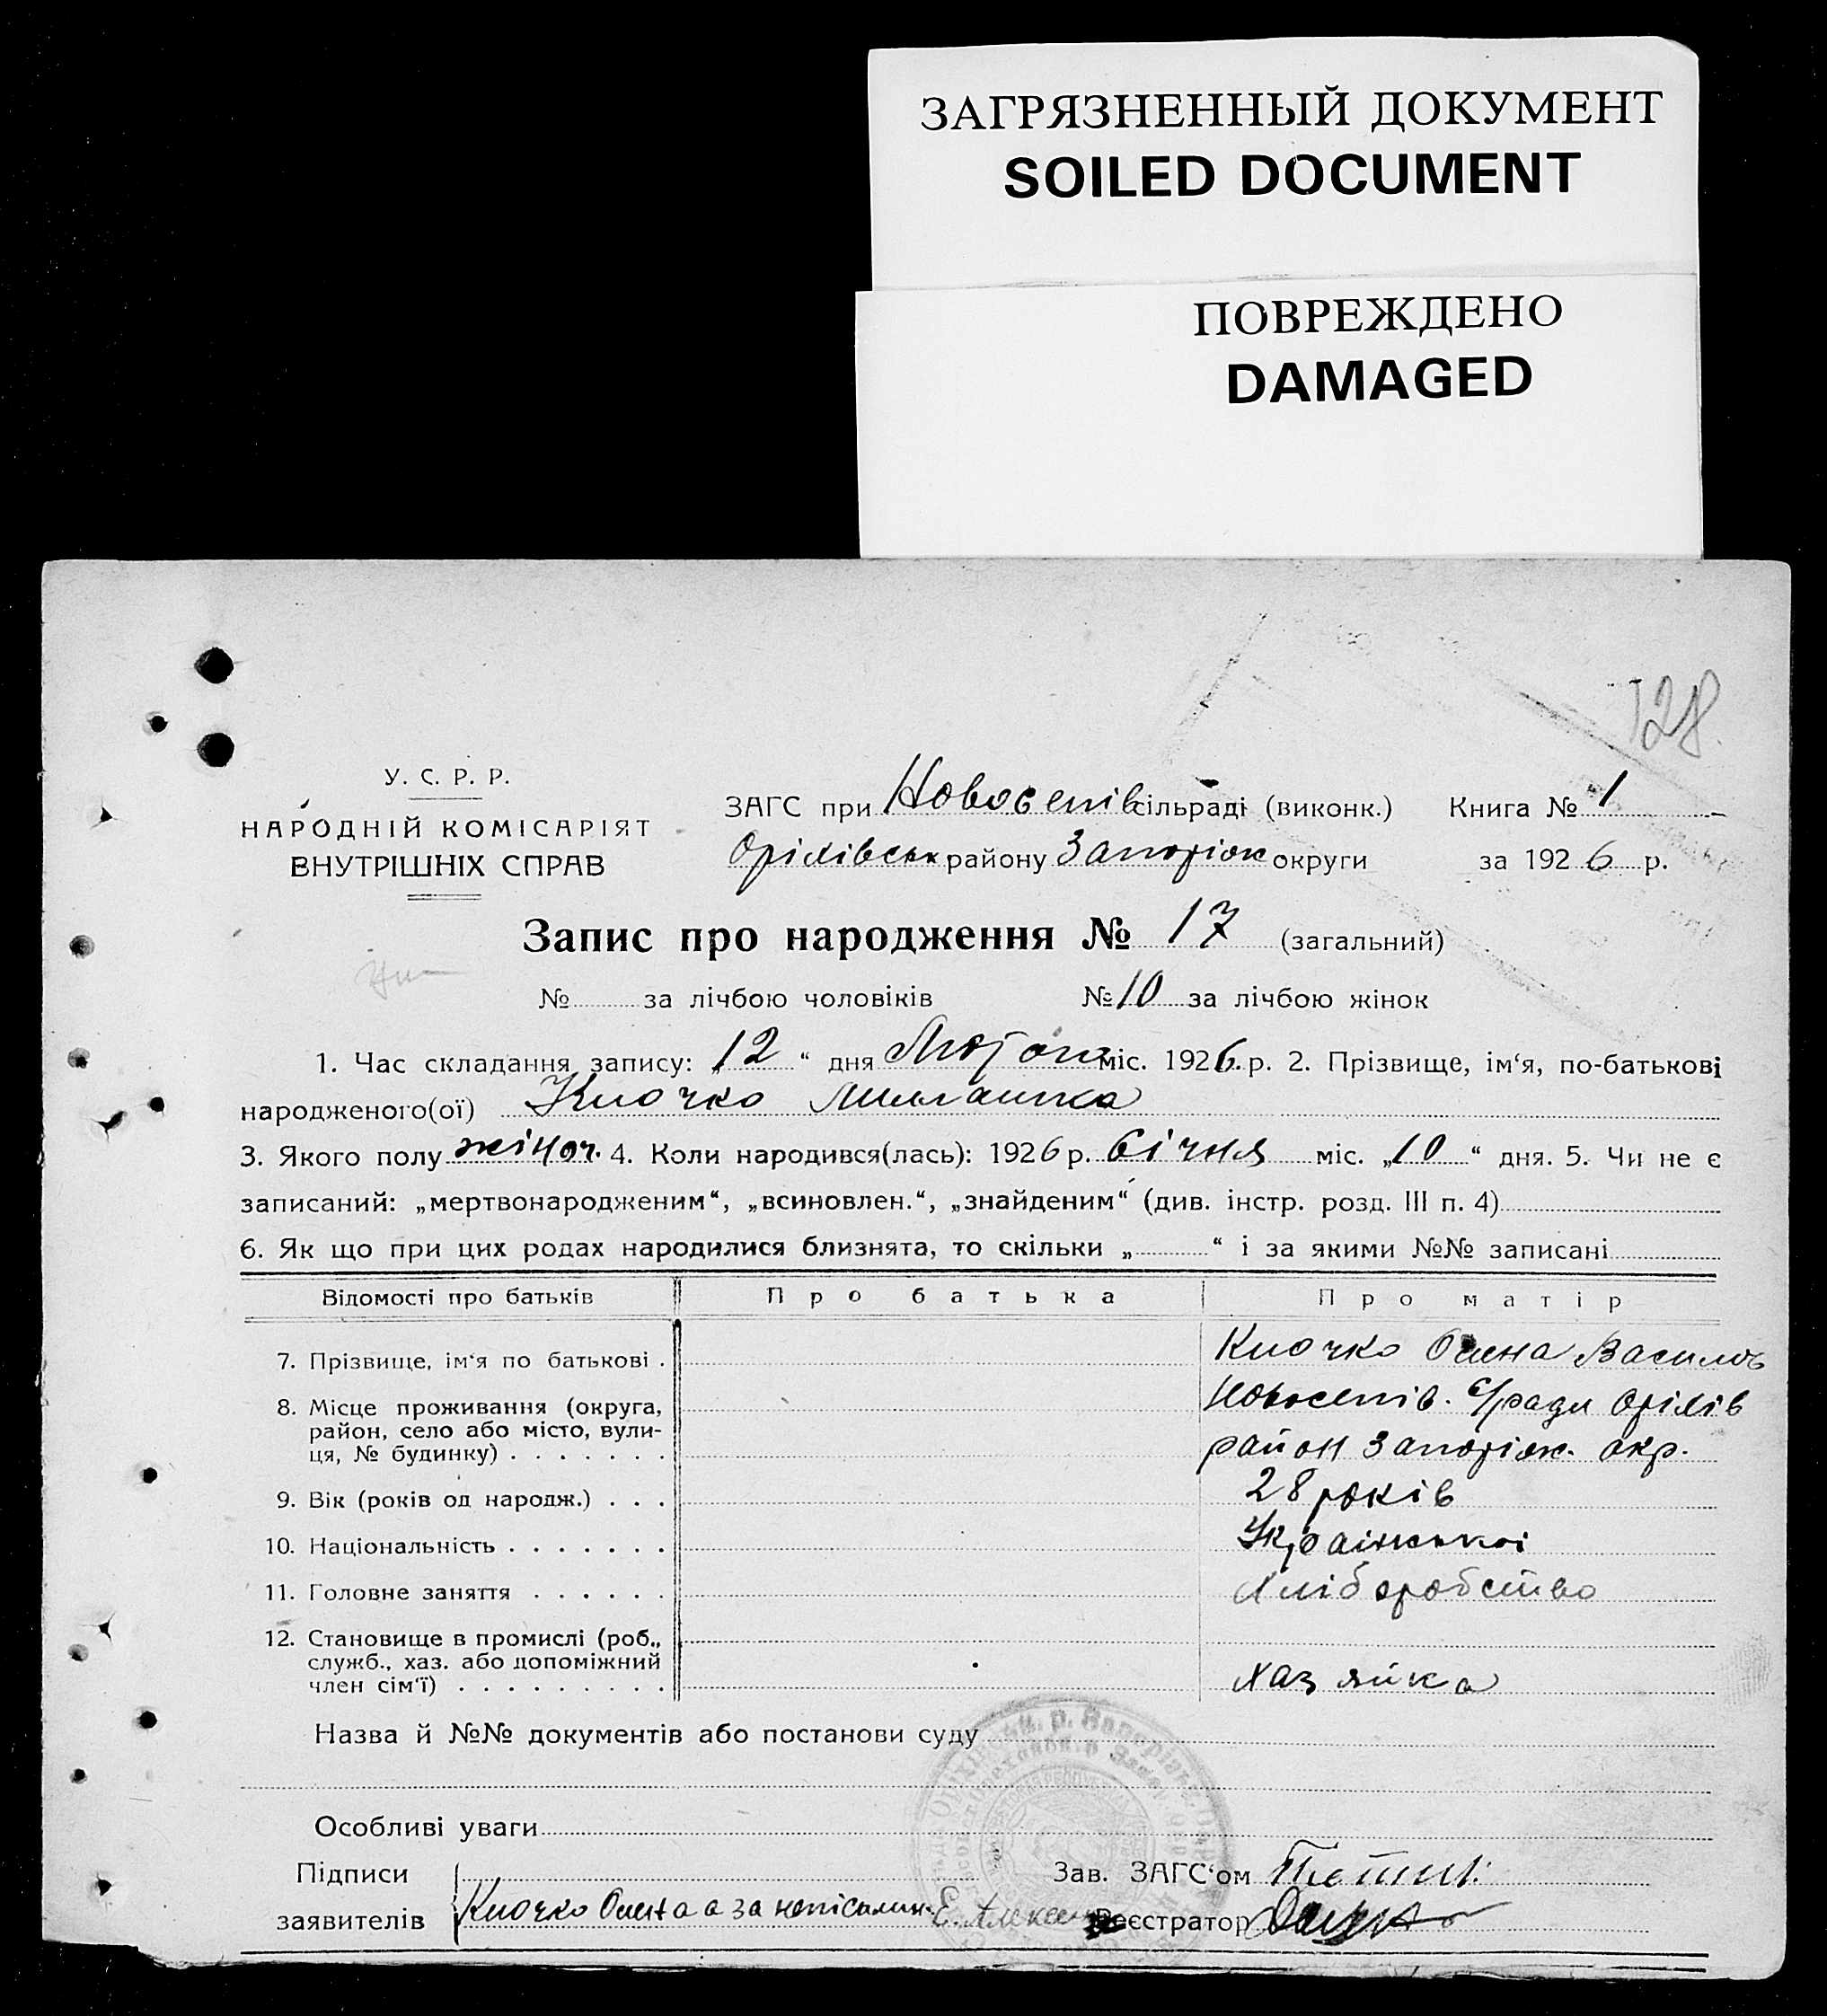 ЗАГРЯЗНЕННЫЙ ДОКУМЕНТ
SOILED DOCUMENT
ПОВРЕЖДЕНО
DAMAGED
128
У. С. Р. Р.
НАРОДНІЙ КОМІСАРІЯТ
ВНУТРІШНІХ СПРАВ
ЗАГС при Новоселівсільраді (виконк.) Книга № 1
Оріхівськ району Запоріж округи за 1926 р.
Запис про народження № 17 (загальний)
№ за лічбою чоловіків № 10 за лічбою жінок
1. Час складання запису: „12“ дня Лютого міс. 1926 р. 2. Прізвище, ім‘я, по-батькові
народженого(ої) Клочко
3. Якого полу жіноч. 4. Коли народився(лась): 1926 р. Січня міс. „10“ дня. 5. Чи не є
записаний: „мертвонародженим“, „всиновлен.“, „знайденим“ (див. інстр. розд. III п. 4)
6. Як що при цих родах народилися близнята, то скільки „ “ і за якими №№ записані
Відомості про батьків Про батька Про матір
7. Прізвище, ім‘я по батькові . Клочко Олена Василів
8. Місце проживання (округа, Новоселів. с/ради Оріхів
район, село або місто, вули-
ця, № будинку) . . . . . . . район Запоріж. окр.
9. Вік (років од народж.) . . . 28 років
10. Національність . . . . . . . Української
11. Головне заняття . . . . . . Хліборобство
12. Становище в промислі (роб.,
служб., хаз. або допоміжний
член сім‘ї) . . . . . . . . . хазяйка
Назва й №№ документів або постанови суду
Особливі уваги
Підписи Зав. ЗАГС‘ом
заявителів Клочко Олена а за неписьмен. Е. Реєстратор